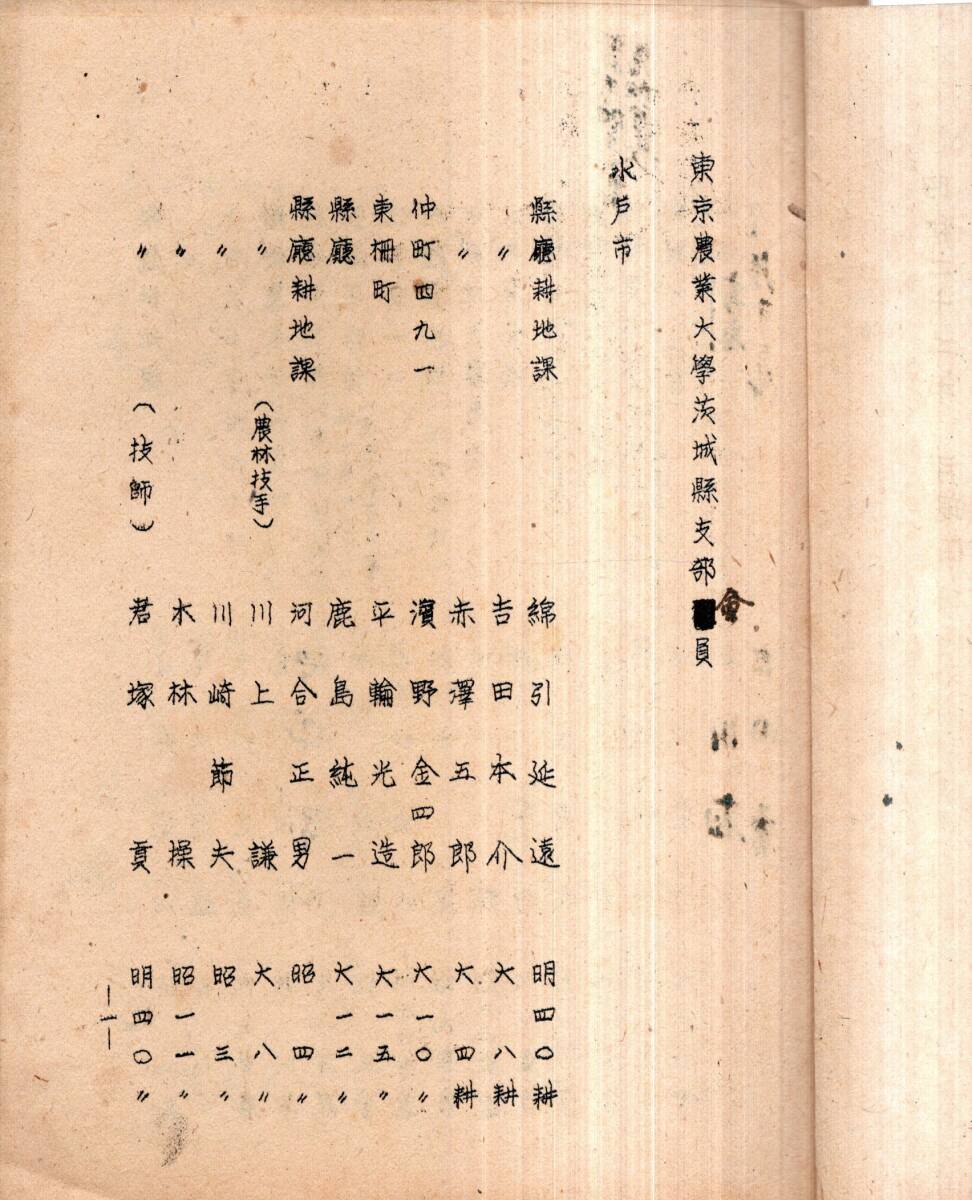 東京農業大學茨城縣支部會員
水戸市
縣廳耕地課 綿引延遠 明四〇耕
〃 吉田本介 大八耕
〃 赤澤五郎 大四耕
仲町四九一 濱野金四郎 大一〇〃
東柵町 平輪光造 大一五〃
縣廳 鹿島純一 大一二〃
縣廳耕地課 河合正男 昭四〃
〃 (農林技手) 川上謙 大八〃
〃 川崎節夫 昭三〃
〃 木林操 昭一一〃
〃 (技師) 君塚貢 明四〇〃
—1—